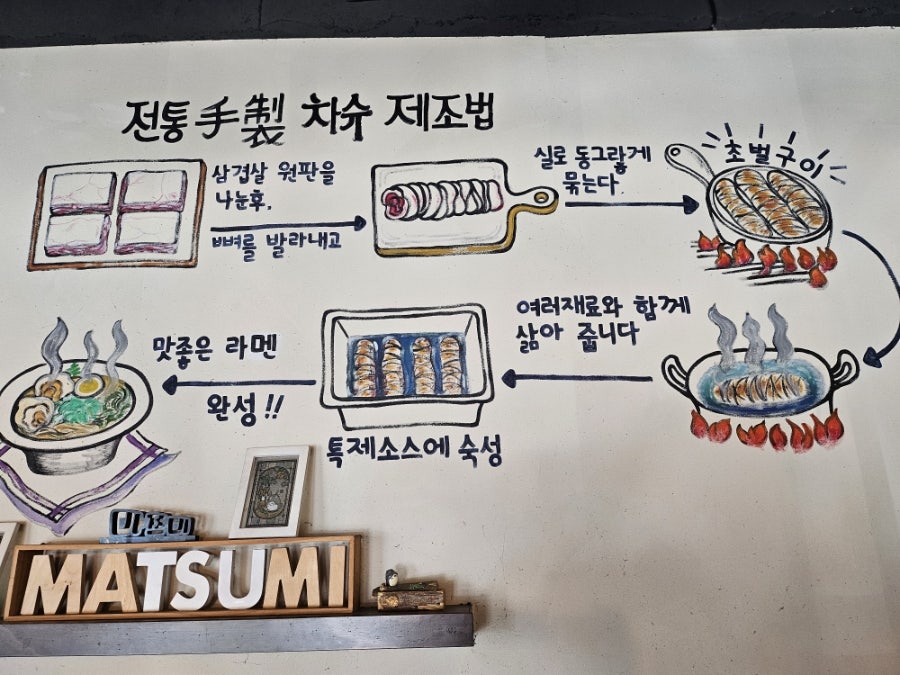 전통 手製 차슈 제조법
삼겹살 원판을
나눈후,
뼈를 발라내고
실로 동그랗게
묶는다.
초벌구이
여러재료와 함께
삶아 줍니다
특제소스에 숙성
맛좋은 라멘
완성!!
마쯔미
MATSUMI